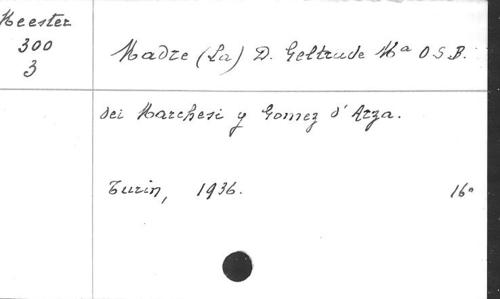 Meester
300
3
Madre (La) D. Geltrude Mª O.S.B.
dei Marchesi y Gomez d'Arza.
Turin, 1936. 16°